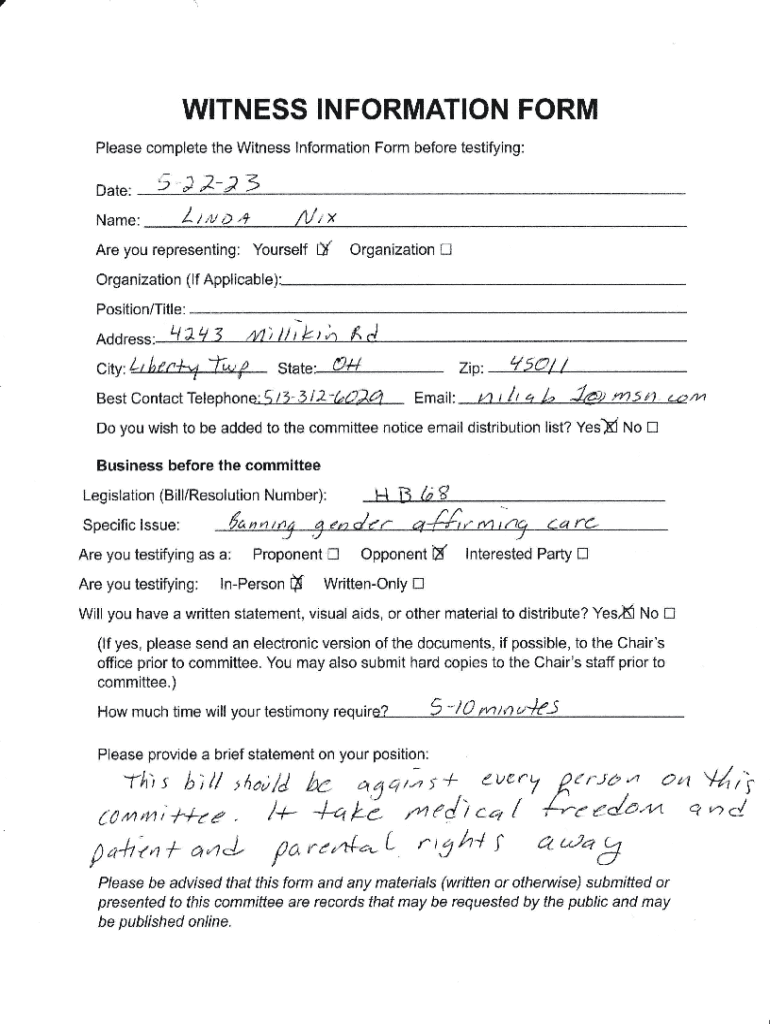 WITNESS INFORMATION FORM
Please complete the Witness Information Form before testifying:
Date: 5-22-23
Name: LINDA NIX
Are you representing: Yourself ☒ Organization ☐
Organization (If Applicable):
Position/Title:
Address: 4243 Millikin Rd
City: Liberty Twp State: OH Zip: 45011
Best Contact Telephone: 513-312-6029 Email: @msn.com
Do you wish to be added to the committee notice email distribution list? Yes ☒ No ☐
Business before the committee
Legislation (Bill/Resolution Number): HB 68
Specific Issue: Banning gender affirming care
Are you testifying as a: Proponent ☐ Opponent ☒ Interested Party ☐
Are you testifying: In-Person ☒ Written-Only ☐
Will you have a written statement, visual aids, or other material to distribute? Yes ☒ No ☐
(If yes, please send an electronic version of the documents, if possible, to the Chair's
office prior to committee. You may also submit hard copies to the Chair's staff prior to
committee.)
How much time will your testimony require? 5-10 minutes
Please provide a brief statement on your position:
This bill should be against every person on this
committee. It take medical freedom and
patient and parental rights away
Please be advised that this form and any materials (written or otherwise) submitted or
presented to this committee are records that may be requested by the public and may
be published online.